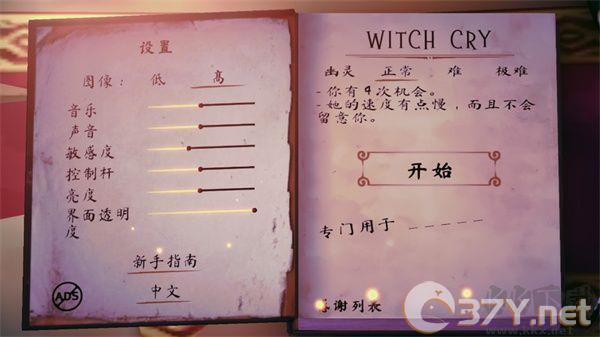 设置
图像： 低 高
音乐
声音
敏感度
控制杆
亮度
界面透明
度
新手指南
中文
ADS
WITCH CRY
幽灵 正常 难 极难
-你有4次机会。
-她的速度有点慢，而且不会
留意你。
开始
专门用于 _ _ _ _ _
感谢列表
37Y.net
www.kkx.net